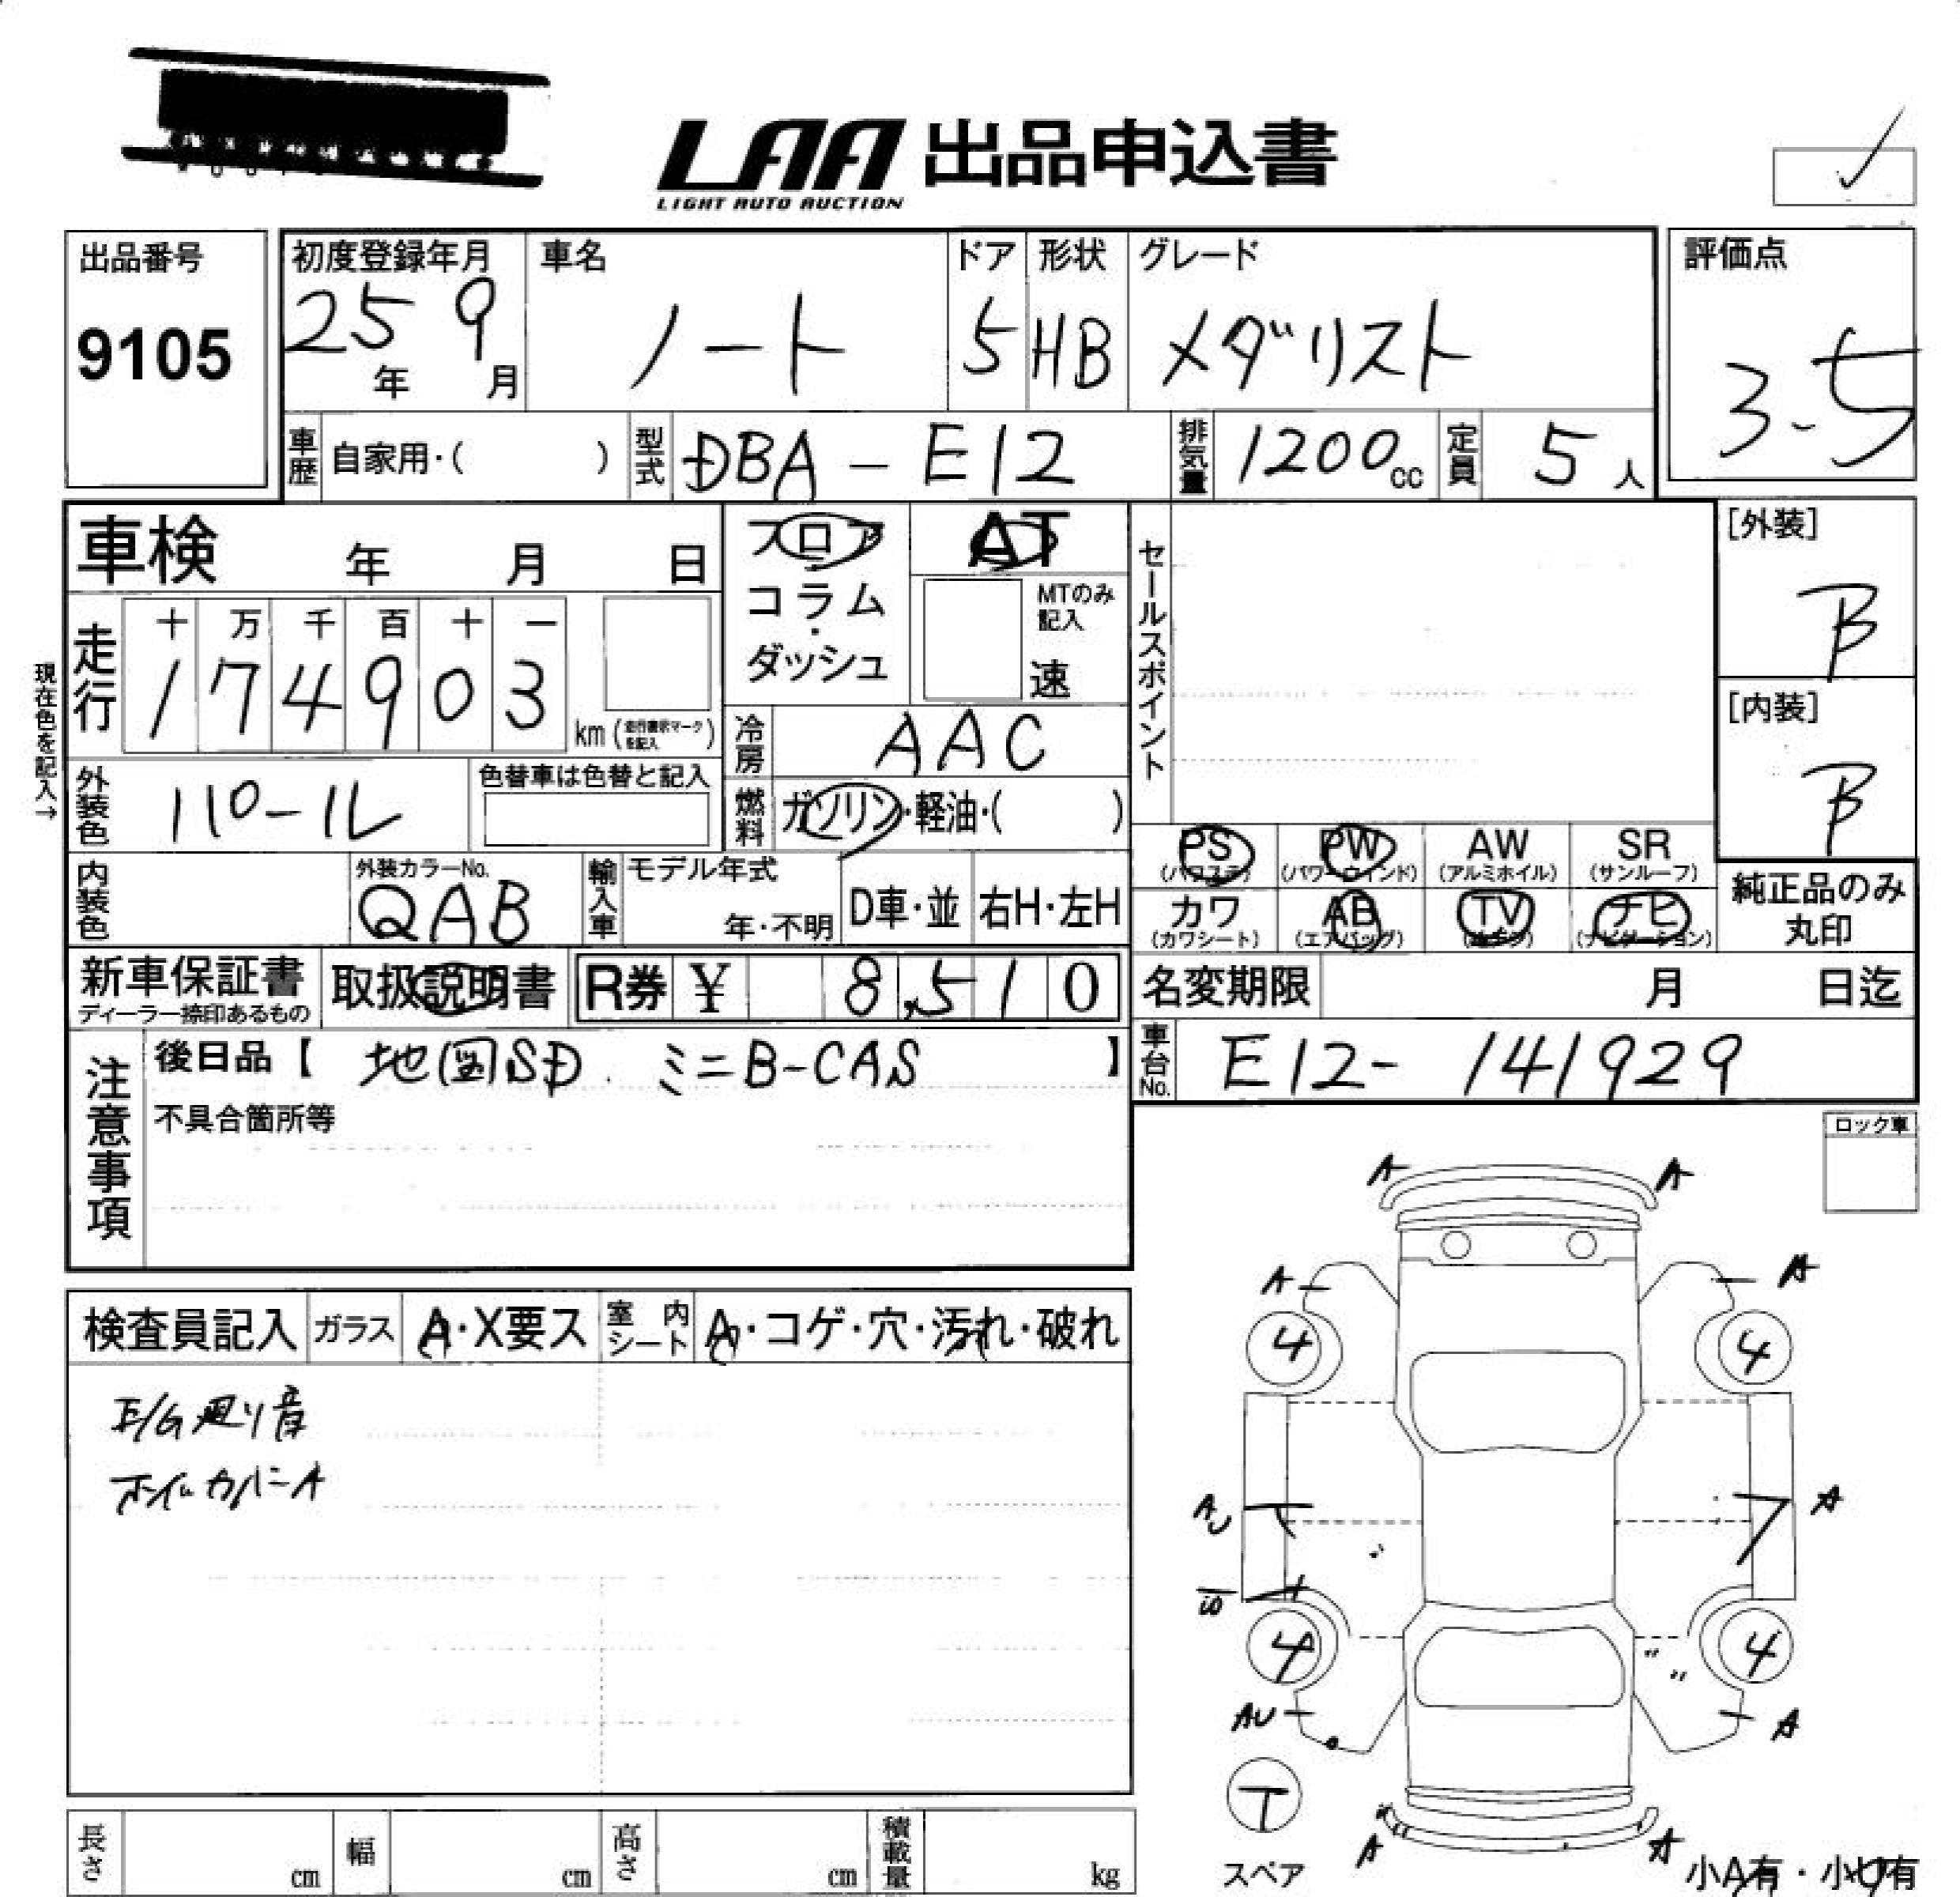 LAA 出品申込書
LIGHT AUTO AUCTION
出品番号
9105
初度登録年月
25年 9月
車名
ノート
ドア
5
形状
HB
グレード
メダリスト
評価点
3.5
車歴 自家用・( )
型式 DBA-E12
排気量 1200cc
定員 5人
車検 年 月 日
フロア
コラム
・
ダッシュ
AT
MTのみ
記入
速
セールスポイント
[外装]
B
[内装]
B
現在色を記入→
走行
十 万 千 百 十 一
1 7 4 9 0 3
km (走行表示マークを記入)
冷房 AAC
外装色 パール
色替車は色替と記入
燃料 ガソリン・軽油・( )
PS
(パワステ)
PW
(パワーウインド)
AW
(アルミホイル)
SR
(サンルーフ)
内装色
外装カラーNo.
QAB
輸入車
モデル年式
年・不明
D車・並
右H・左H
カワ
(カワシート)
AB
(エアバッグ)
TV
ナビ
(ナビゲーション)
純正品のみ
丸印
新車保証書
ディーラー捺印あるもの
取扱説明書
R券 ¥ 8,510
名変期限 月 日迄
注意事項
後日品【 地図SD ミニB-CAS 】
車台No. E12-141929
不具合箇所等
ロック車
検査員記入
ガラス A・X要ス
室内シート A・コゲ・穴・汚れ・破れ
E/G廻り音
ホイルカバーA
A A
A A
4 4
AU A
4 4
AU A
T
スペア
A A
小A有・小U有
長さ cm
幅 cm
高さ cm
積載量 kg